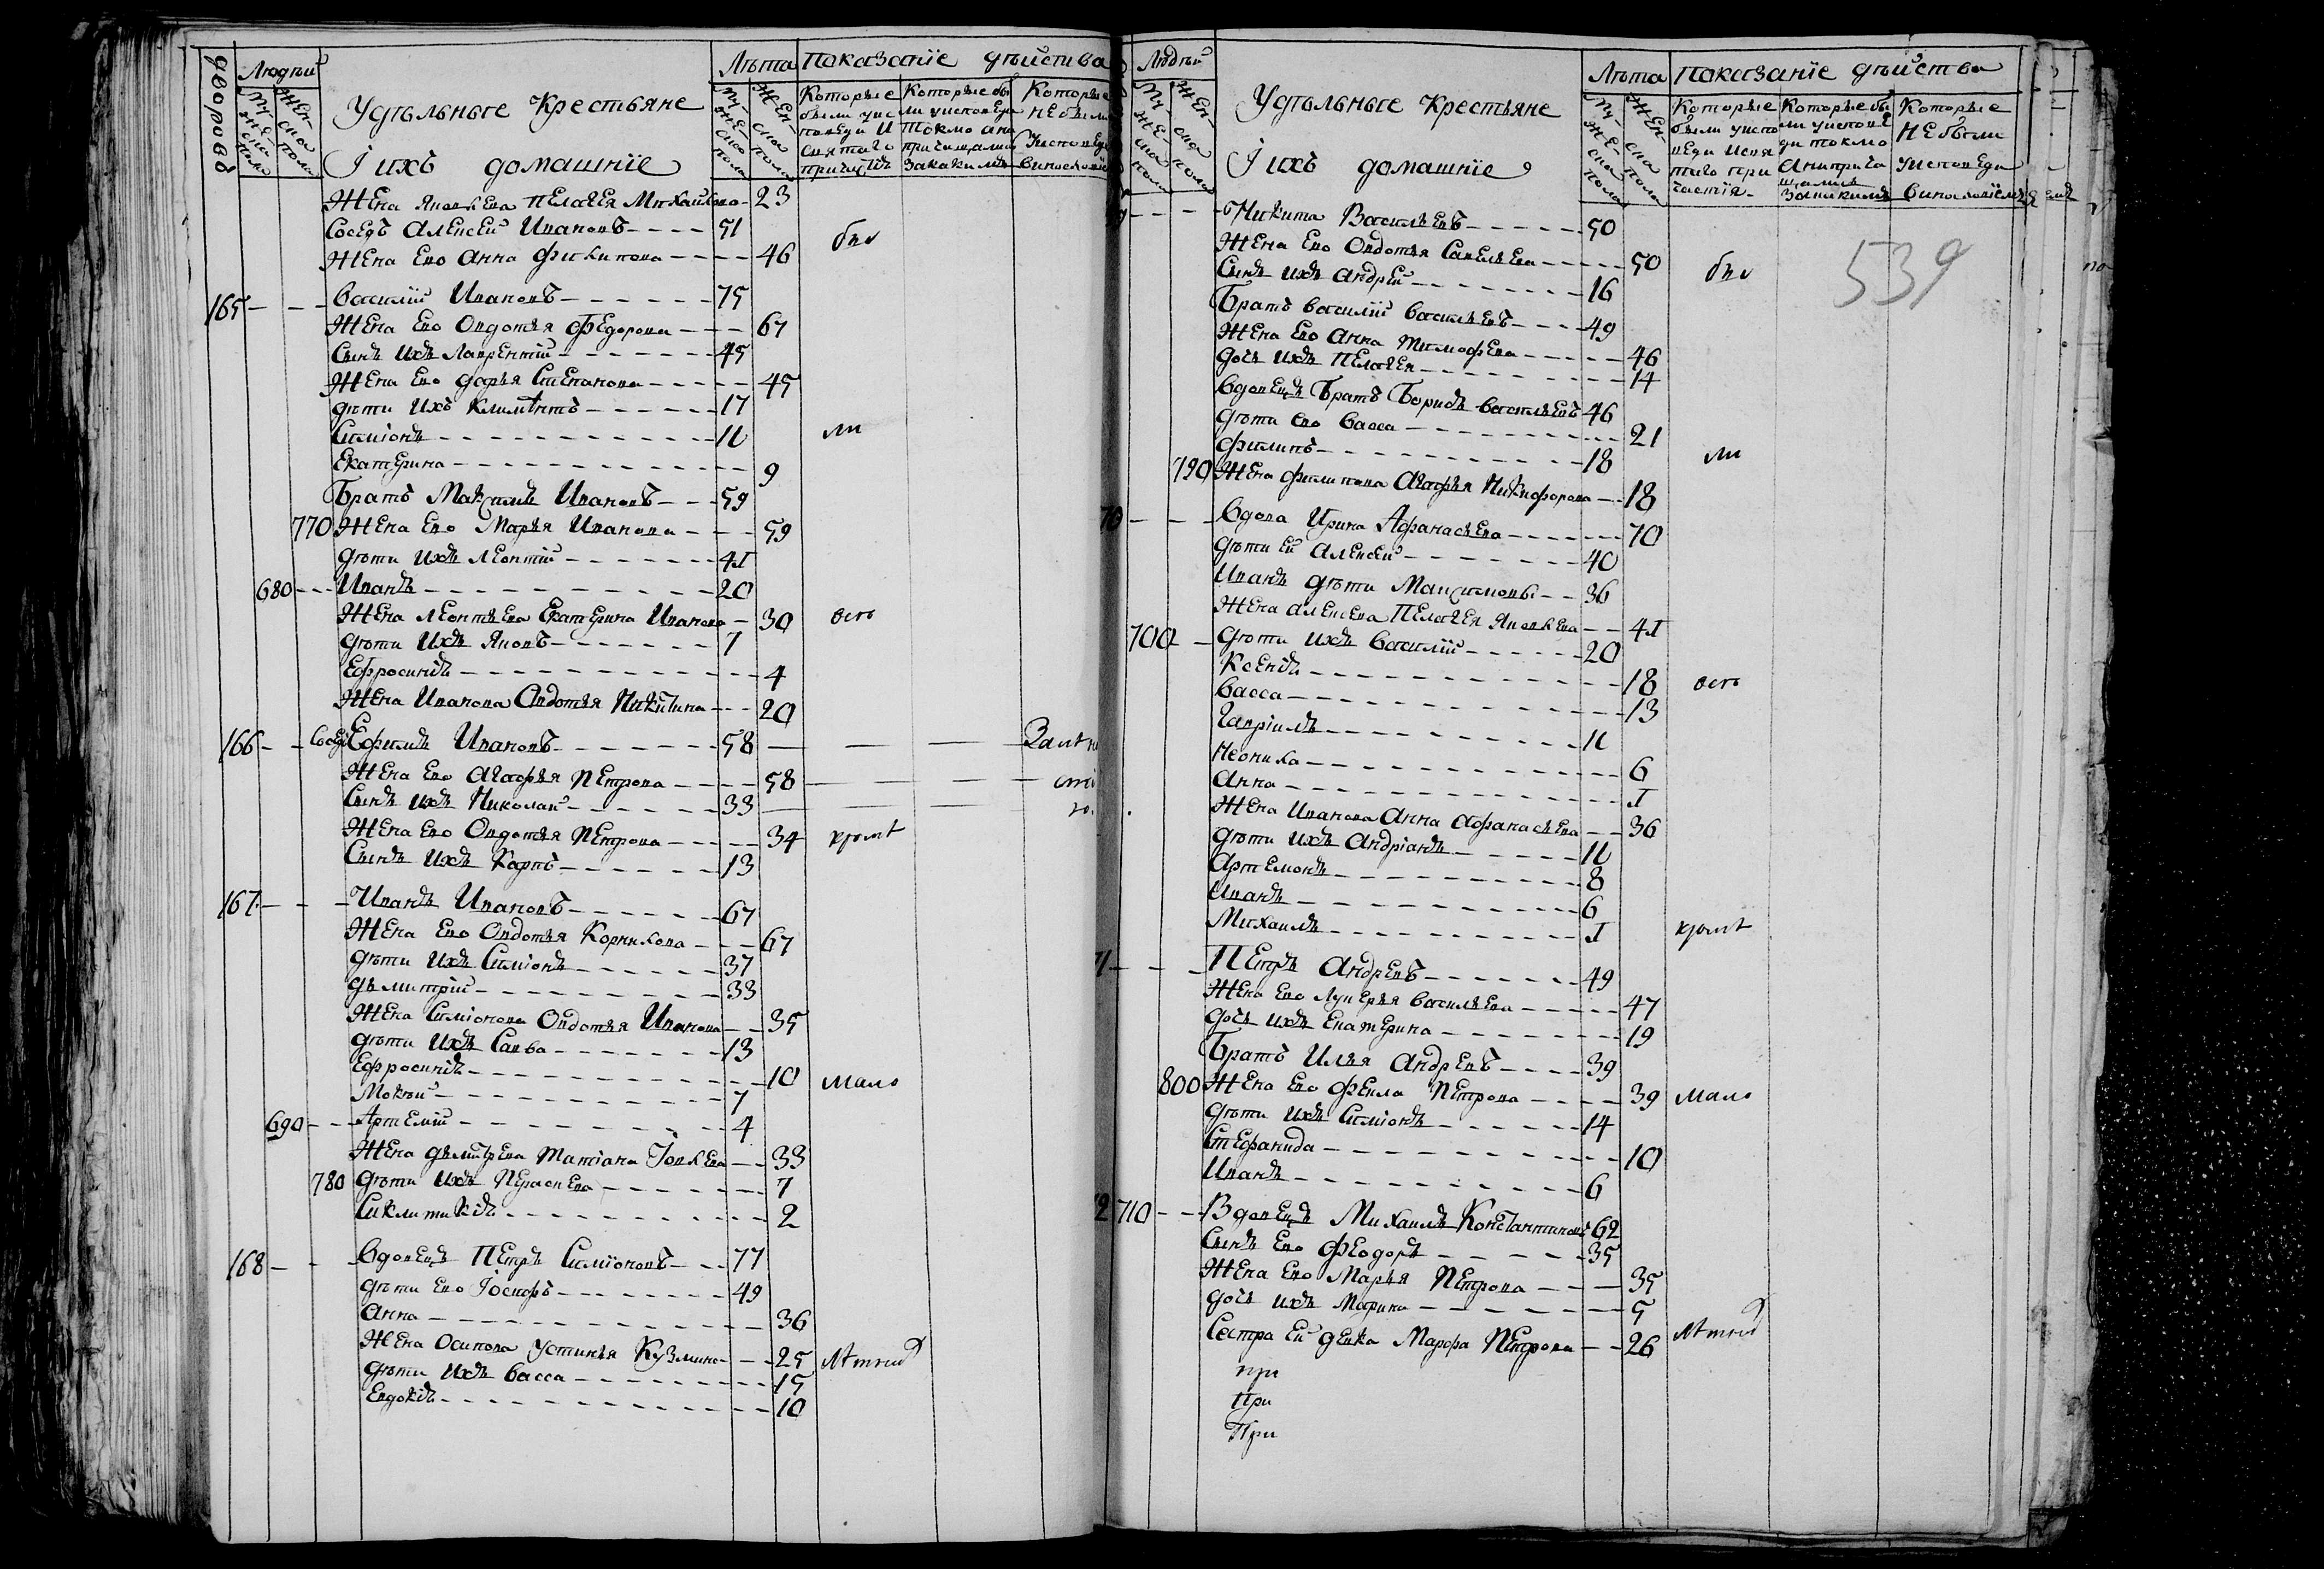 дворовъ
Людѣй
Мужеска пола
Женска пола
Удѣльныѣ Крестьянѣ
І ихъ домашніе
Лѣта
Мужеска пола
Женска пола
Показаніе дѣйства
Которые были у исповеди И святаго
Которые бы ли у исповеди токмо а не причащались За какимъ
Которые не были У исповеди
Жена Яковлева Пелагея Михайлова 23
Соседъ Алексей Ивановъ 51
был
Жена Ево Анна Филипова 46
165 Василій Ивановъ 75
Жена Ево Овдотья Федорова 67
Сынъ ихъ Лаврентій 45
Жена Ево Дарья Степанова 45
дѣти ихъ Климѣнтъ 17
Симіонъ 11
ли
Екатерина 9
Братъ Максимъ Ивановъ 59
770 Жена Ево Марья Иванова 59
дѣти ихъ Леонтій 41
680 Иванъ 20
Жена Леонтьева Екатерина Иванова 30
всѣ
дѣти ихъ Яковъ 7
Ефросинія 4
Жена Иванова Овдотья Никитина 20
166 Сосед Ефимъ Ивановъ 58
Жена Ево Агафья Петрова 58
Сынъ ихъ Николай 33
Жена Ево Овдотья Петрова 34
кромѣ
Сынъ ихъ Карпъ 13
167 Иванъ Ивановъ 67
Жена Ево Овдотья Корнилова 67
дѣти ихъ Симіонъ 37
Дьмитрій 33
Жена Симіонова Овдотья Иванова 35
дѣти ихъ Савва 13
Ефросинія 10
мало
Мокѣй 7
690 Артемій 4
Жена Дьмитрева Татіана Іовлева 33
780 дѣти ихъ Парасковья 7
Сиклитикія 2
168 Вдовецъ Петръ Симіоновъ 77
дѣти Ево Іосифъ 49
Анна 36
Жена Осипова Устинья Кузмина 25
лѣтных
дѣти ихъ Васса 15
Евдокія 10
Людѣй
Мужеска пола
Женска пола
Удѣльныѣ Крестьянѣ
І ихъ домашніе
Лѣта
Мужеска пола
Женска пола
Показаніе дѣйства
Которые были у исповеди и свя таго при частія
Которые бы ли у исповеди токмо А не прича щались За какимъ
Которые Не были У исповеди
539
Никита Васильевъ 50
Жена Ево Овдотья Савельева 50
был
Сынъ ихъ Андрей 16
Братъ Василій Васильевъ 49
Жена Ево Анна Тимофева 46
дочь ихъ Пелагея 14
Вдовецъ Братъ Борисъ Васильевъ 46
дѣти Ево Васса 21
Филипъ 18
ли
790 Жена Филипова Агафья Никифорова 18
70 Вдова Ирина Афанасьева 70
дѣти Ей Алексей 40
Иванъ дѣти Максимовы 36
Жена Алексева Пелагея Яковлева 41
700 дѣти ихъ Василій 20
Ксенія 18
всѣ
Васса 13
Гавріилъ 11
Неонила 6
Анна 1
Жена Иванова Анна Афанасьева 36
дѣти ихъ Андріанъ 11
Артемонъ 8
Иванъ 6
Михаилъ 1
кромѣ
71 Петръ Андревъ 49
Жена Ево Лукерья Васильева 47
дочь ихъ Екатерина 19
Братъ Илья Андревъ 39
800 Жена Ево Фекла Петрова 39
мало
дѣти ихъ Симіонъ 14
Стефанида 10
Иванъ 6
72 710 Вдовецъ Михаилъ Константиновъ 62
Сынъ Ево Феодоръ 35
Жена Ево Марья Петрова 35
дочь ихъ Марина 5
Сестра Ей девка Марфа Петрова 26
лѣтных
при
При
При